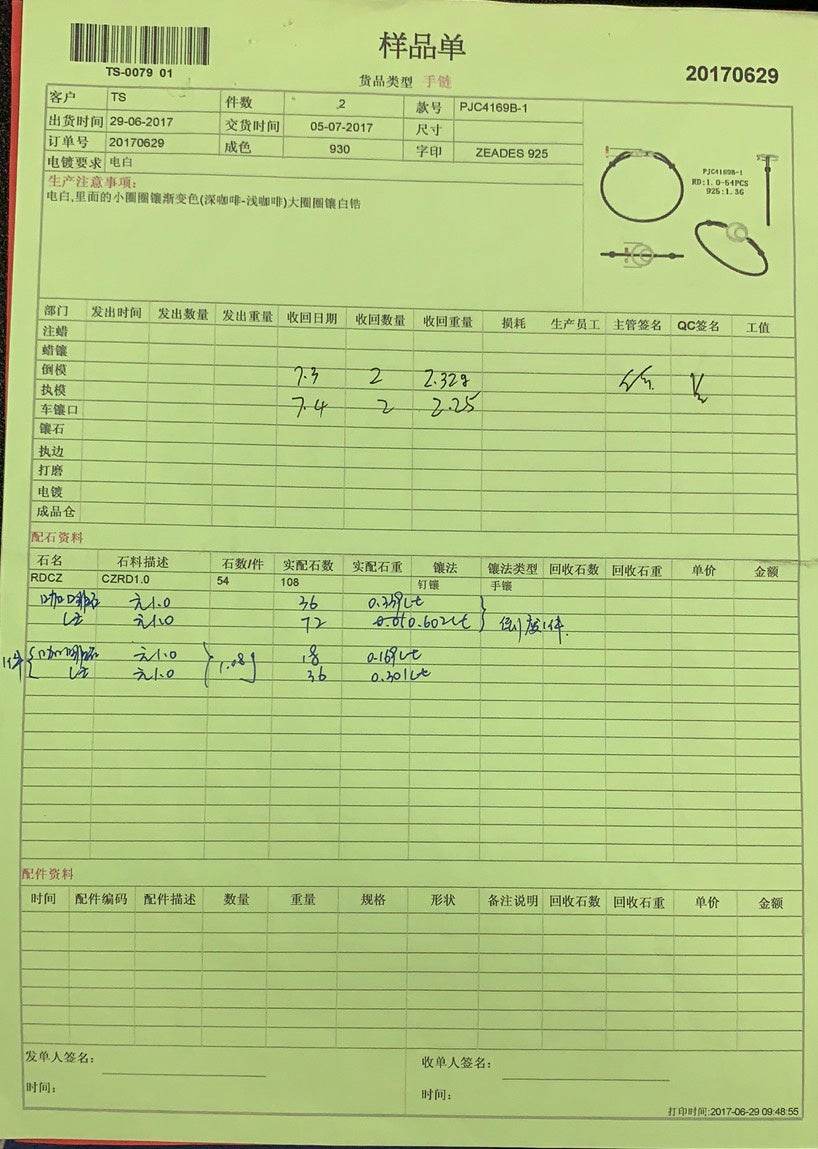 样品单
TS-0079 01
货品类型 手链
20170629
客户 TS 件数 2 款号 PJC4169B-1
出货时间 29-06-2017 交货时间 05-07-2017 尺寸
订单号 20170629 成色 930 字印 ZEADES 925
电镀要求 电白
生产注意事项：
电白,里面的小圈圈镶渐变色(深咖啡-浅咖啡)大圈圈镶白锆
PJC4169B-1
RD:1.0-54PCS
925:1.3G
部门 发出时间 发出数量 发出重量 收回日期 收回数量 收回重量 损耗 生产员工 主管签名 QC签名 工值
注蜡
蜡镶
倒模 7.3 2 2.32g
执模
车镶口 7.4 2 2.25
镶石
执边
打磨
电镀
成品仓
配石资料
石名 石料描述 石数/件 实配石数 实配石重 镶法 镶法类型 回收石数 回收石重 单价 金额
RDCZ CZRD1.0 54 108 钉镶 手镶
咖啡石 元1.0 36 0.339ct
元1.0 72 0.602ct
1件 咖啡石 元1.0 1.08g 18 0.169ct
元1.0 36 0.301ct
配件资料
时间 配件编码 配件描述 数量 重量 规格 形状 备注说明 回收石数 回收石重 单价 金额
发单人签名： 收单人签名：
时间： 时间：
打印时间:2017-06-29 09:48:55